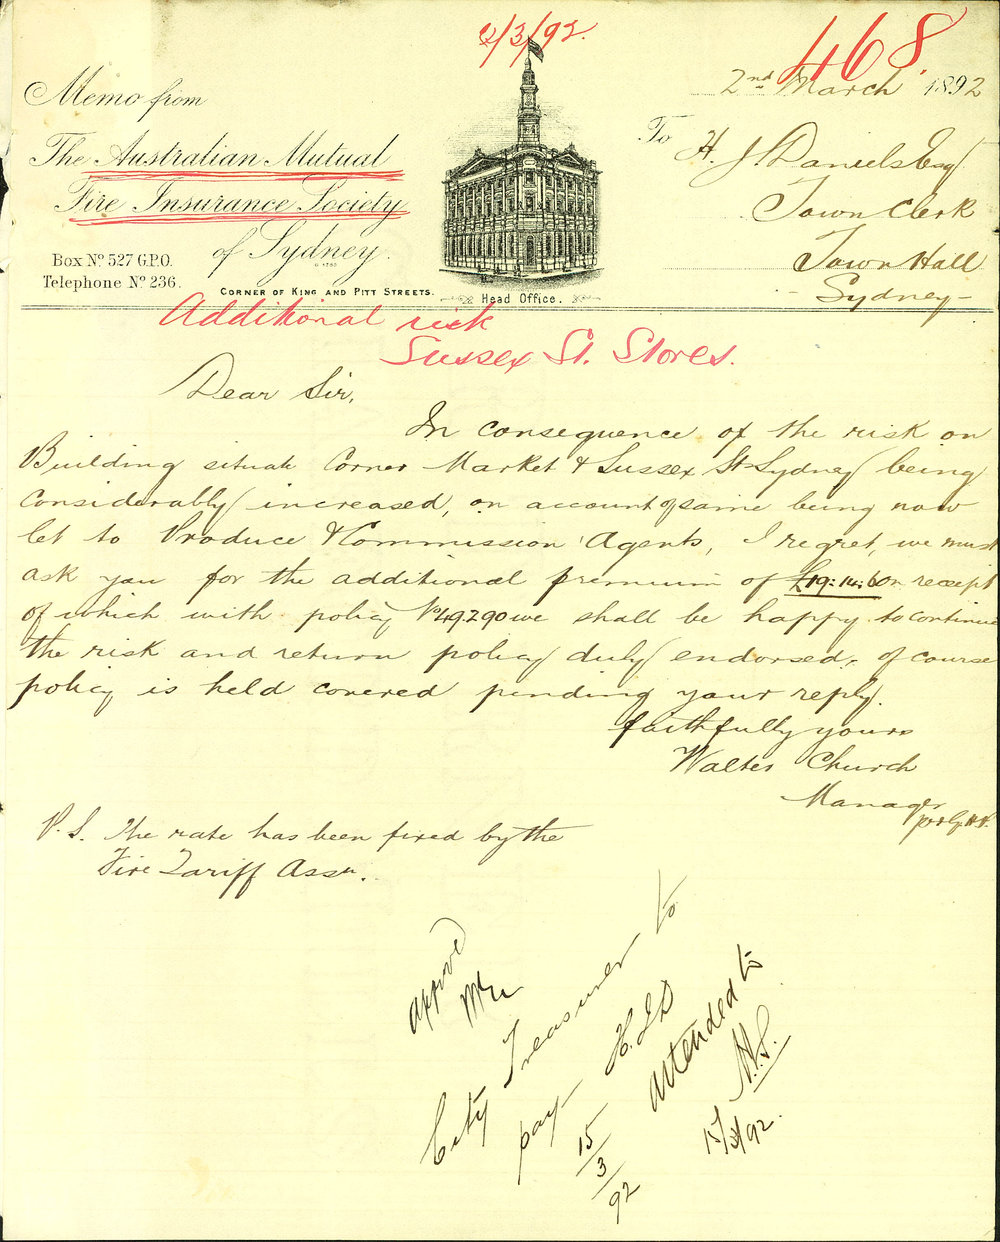 2/3/92.
468
Memo from
The Australian Mutual
Fire Insurance Society
of Sydney.
Box No. 527 G.P.O.
Telephone No. 236.
Corner of King and Pitt Streets.
Head Office.
2nd March 1892
To H. J. Daniels Esq
Town Clerk
Town Hall
Sydney
Additional risk
Sussex St. Stores.
Dear Sir,
In consequence of the risk on
Building situate Corner Market & Sussex St Sydney being
considerably increased, on account of same being now
let to Produce & Commission Agents, I regret, we must
ask you for the additional premium of £19:14:6 on receipt
of which with policy No 49290 we shall be happy to continue
the risk and return policy duly endorsed, of course
policy is held covered pending your reply.
faithfully yours
Walter Church
Manager
P.S. The rate has been fixed by the
Fire Tariff Assn.
approved
City Treasurer to
pay H.J.D
15/3/92
attended to
15/3/92.